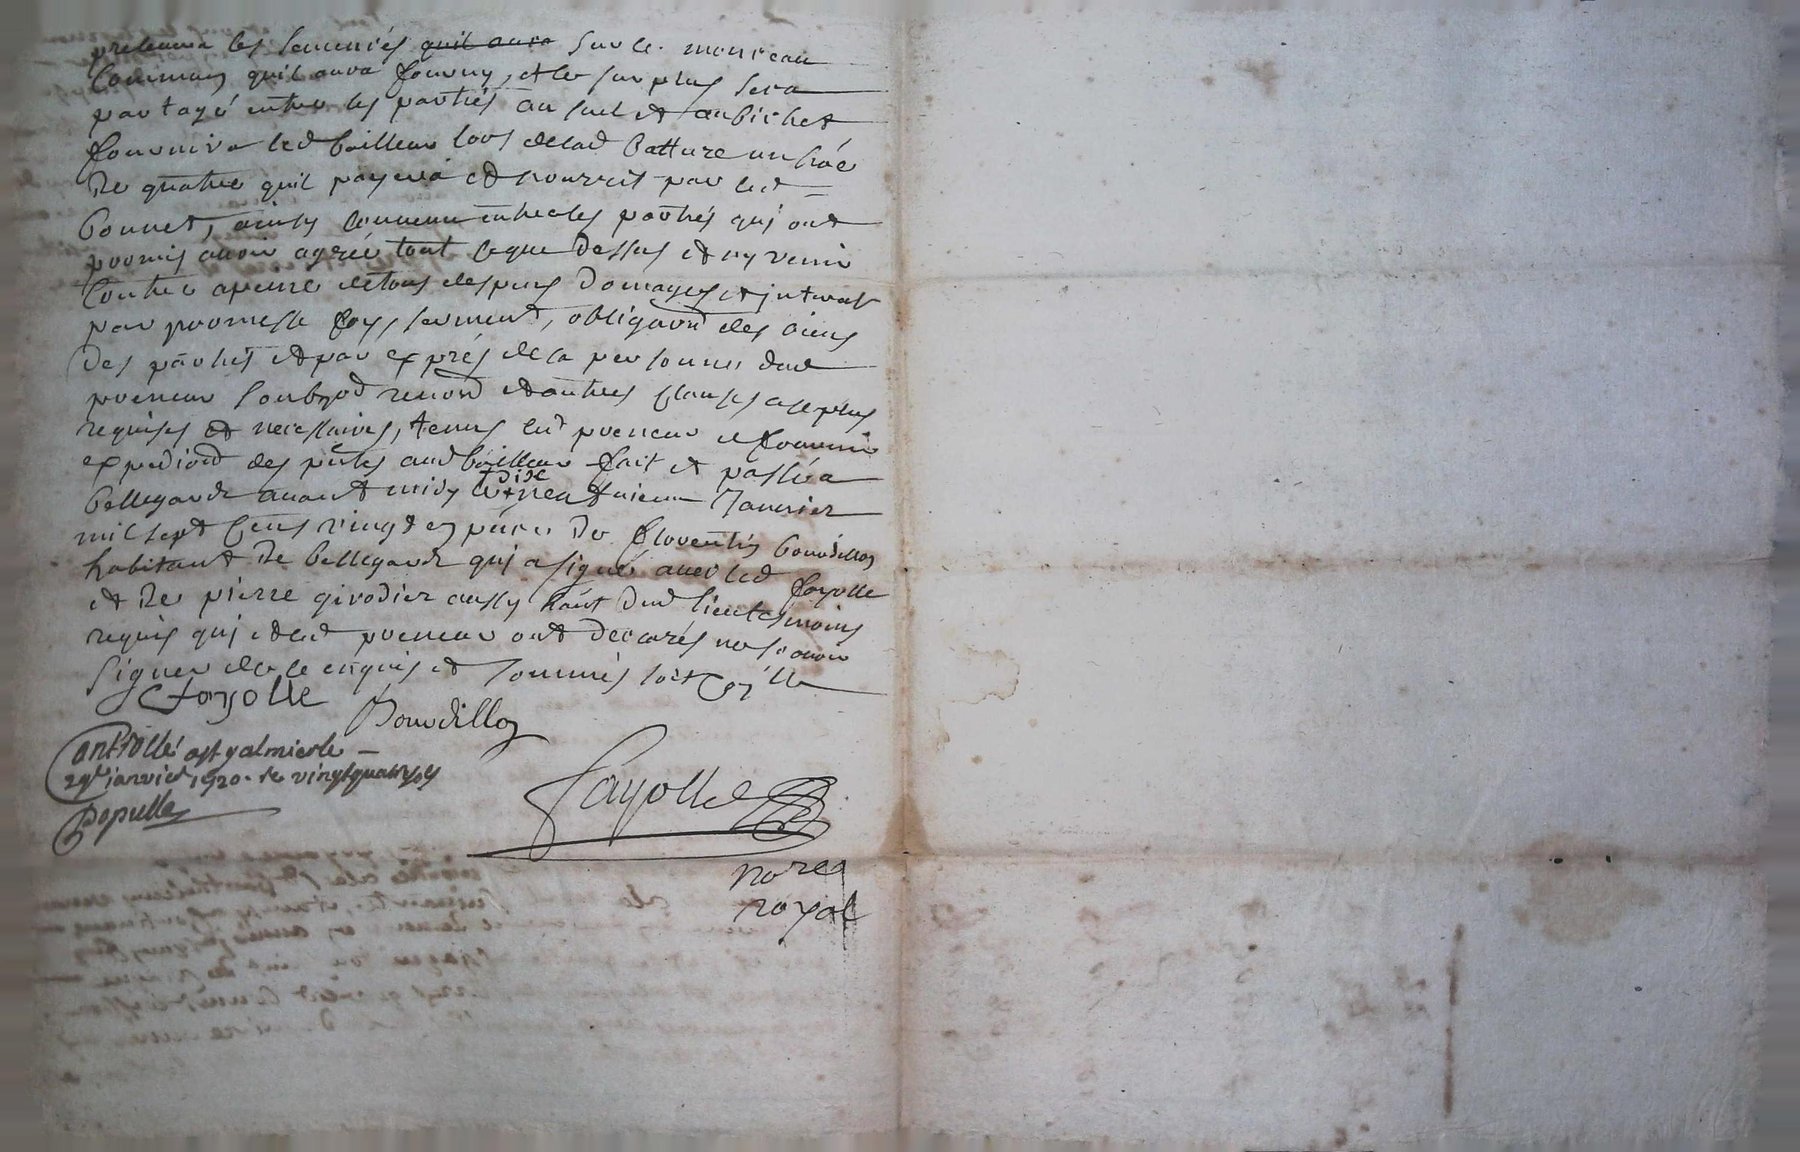 prelevera les semences quil aura sur le monceau
Commun quil aura fourny, et le surplus sera
partagé entre les parties au sueil et au bichet
fournira led bailleur lors delad batture un
De quatre quil payera et nourrit par led
bonnet, ainsy convenu entre les parties qui ont
promis avoir agrée tout ceque Dessus et ny venir
Contre apeine de tous despens Domages et jnterest
par promesse foy, serment, obligaõn des biens
Des parties et par exprés de la personne dud
preneur renonõn et autres clauses aceplus
requises et necessaires, tenus led preneur de fournir
expedion des pñtes aud bailleur fait et passé a
bellegarde avant midy le dixneufvieme Janvier
mil sept Cens vingt en pñce De florentin bourdillon
habitant De bellegarde qui a signé avec led fayolle
et De pierre girodier aussy hãnt Dud lieu tesmoins
requis qui et led preneur ont declarés ne scavoir
signer de ce enquis et sommés soit
C fayolle
Bourdillon
Controllé a st galmier le
29e janvier 1720. re vingtquatre sols
Populle
fayolle
nore
royal